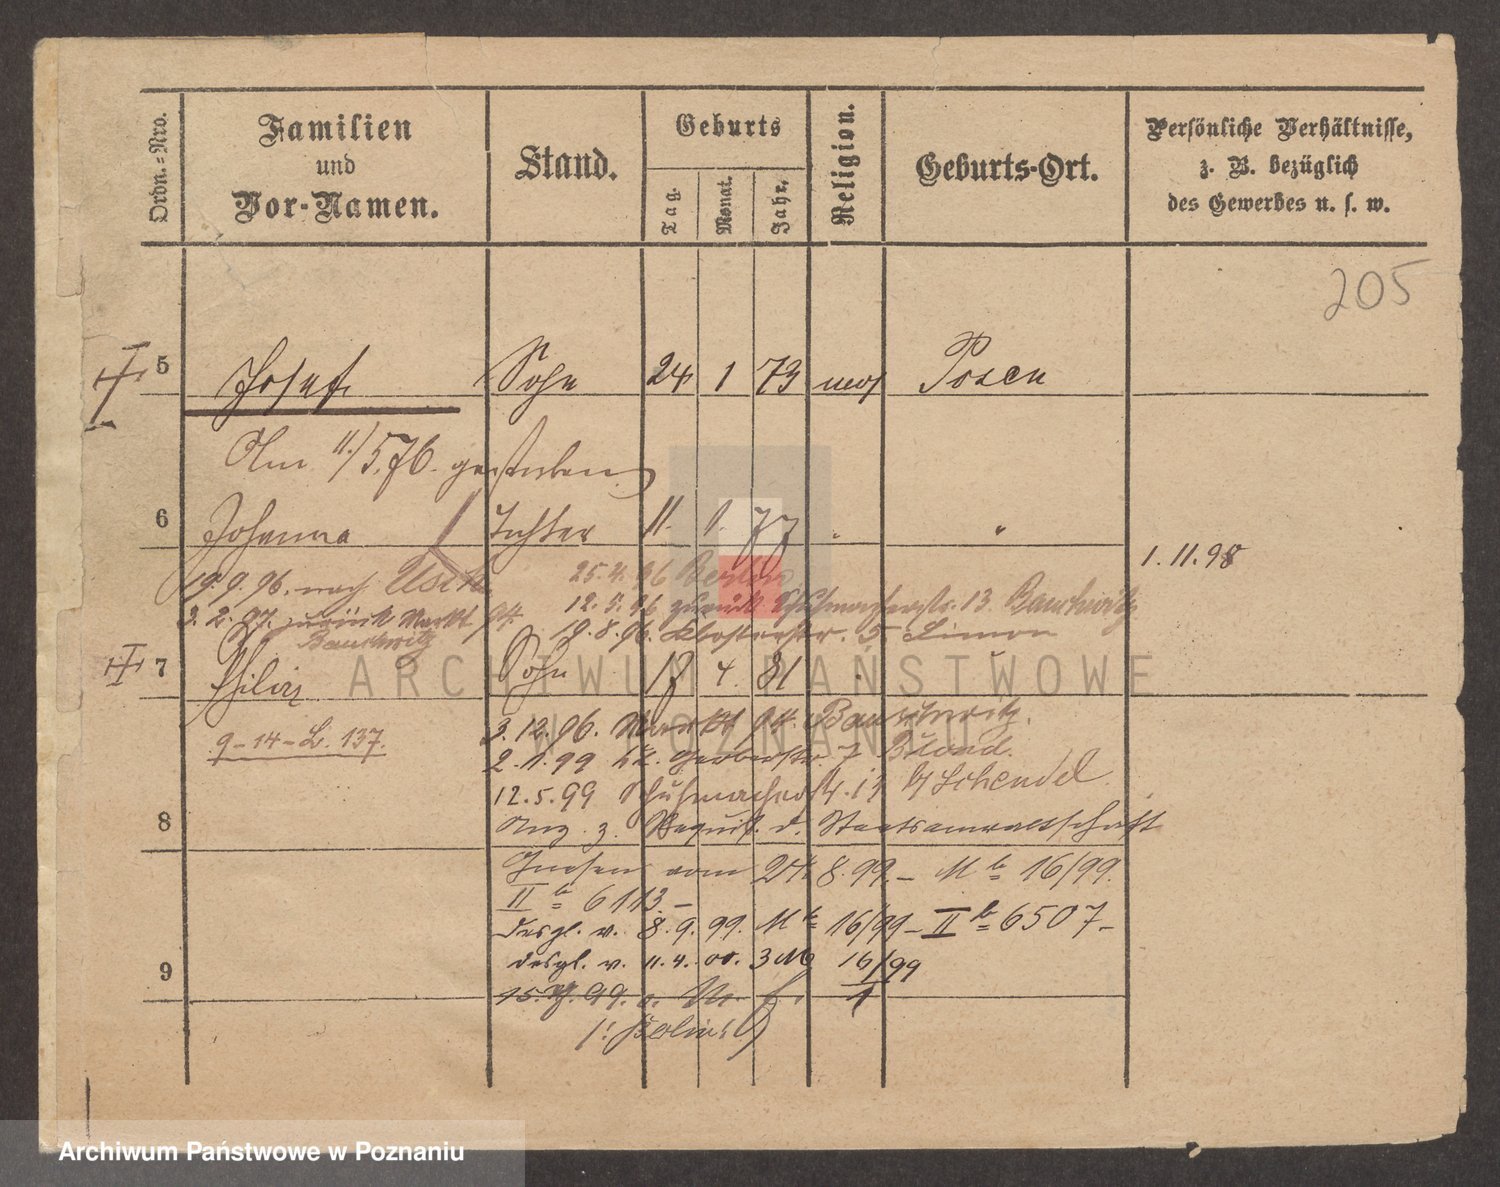 Ordn.-Nro.
Familien
und
Vor-Namen.
Stand.
Geburts
Tag.
Monat.
Jahr.
Religion.
Geburts-Ort.
Persönliche Verhältnisse,
z. B. bezüglich
des Gewerbes u. s. w.
205
5 Josef Sohn 24 1 73 mos Posen
Am 11/5.76. gestorben
6 Johanna Tochter 11. 1. 77 " "
1.11.98
19.9.96. nach
25.4.96 Berlin
3.2.97. zurück Markt 94.
Bauchwitz
12.5.96 zurück Schuhmacherstr. 13 Bauchwitz
19.8.96. Klosterstr. 5 Simon
7 Sohn 18 4 81
ARCHIWUM PAŃSTWOWE
W POZNANIU
9-14-L. 137.
3.12.96. Markt 94. Bauchwitz.
2.1.99 Gerberstr. 7 Brand.
12.5.99 Schuhmacherstr. 13 b/ Schendel
8
Anz. z. Requis. d. Staatsanwaltschaft
Gnesen vom 24.8.99. – M b 16/99.
II b 6113. –
desgl. v. 8.9.99. M b 16/99 – II b 6507. –
9
desgl. v. 11.4.00. 3 M 16/99
1
15. 99.
Archiwum Państwowe w Poznaniu